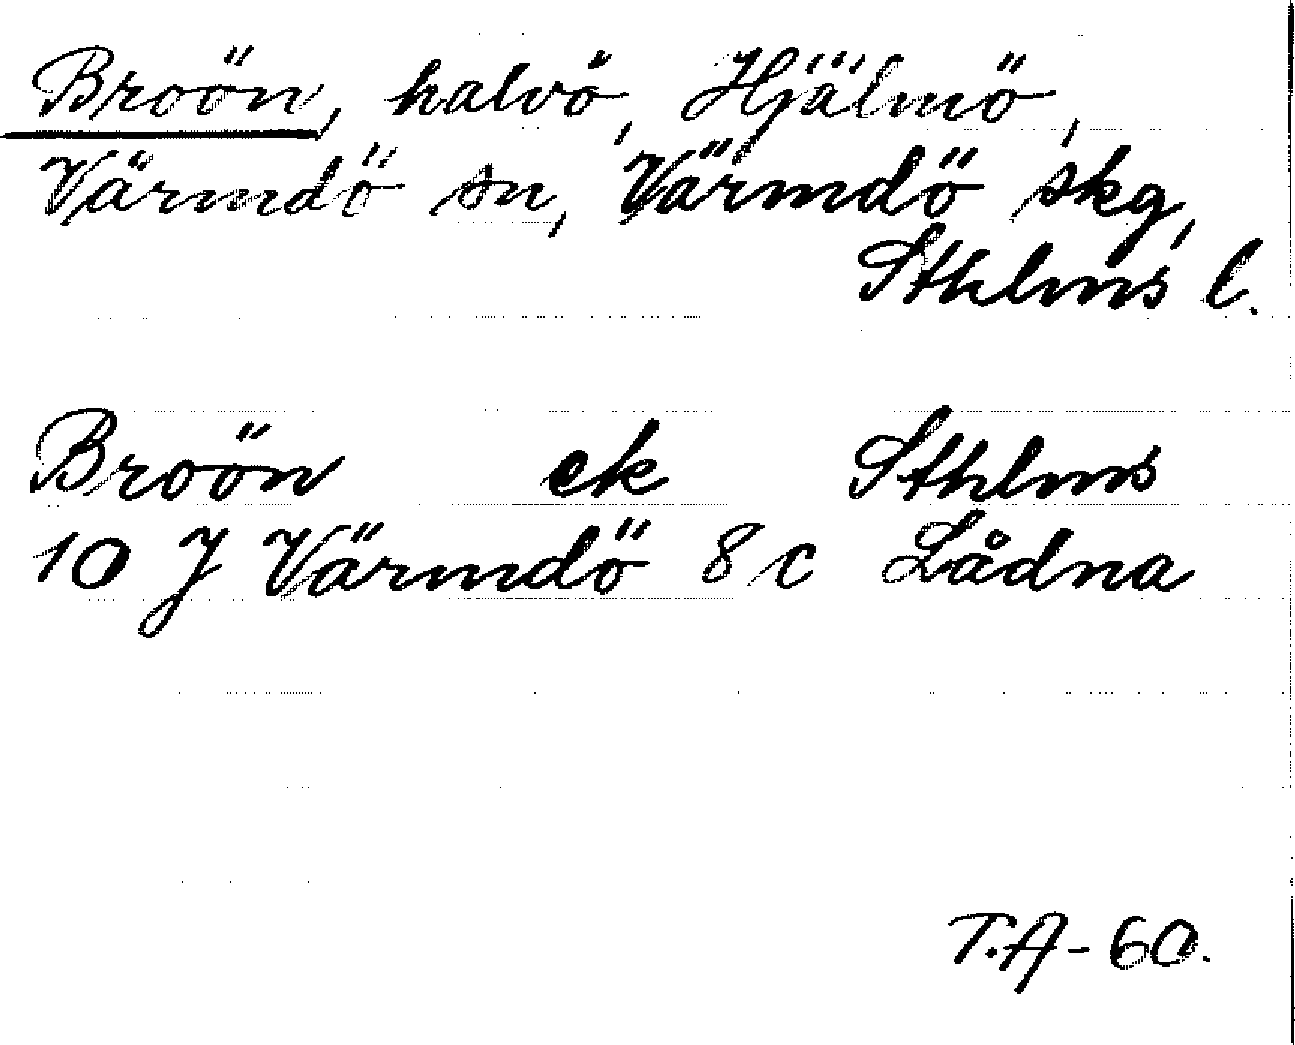 Broön, halvö, Hjälmö,
Värmdö sn, Värmdö skg,
Sthlms l.
Broön ek Sthlms
10 J Värmdö 8 c Lådna
T.A-60.